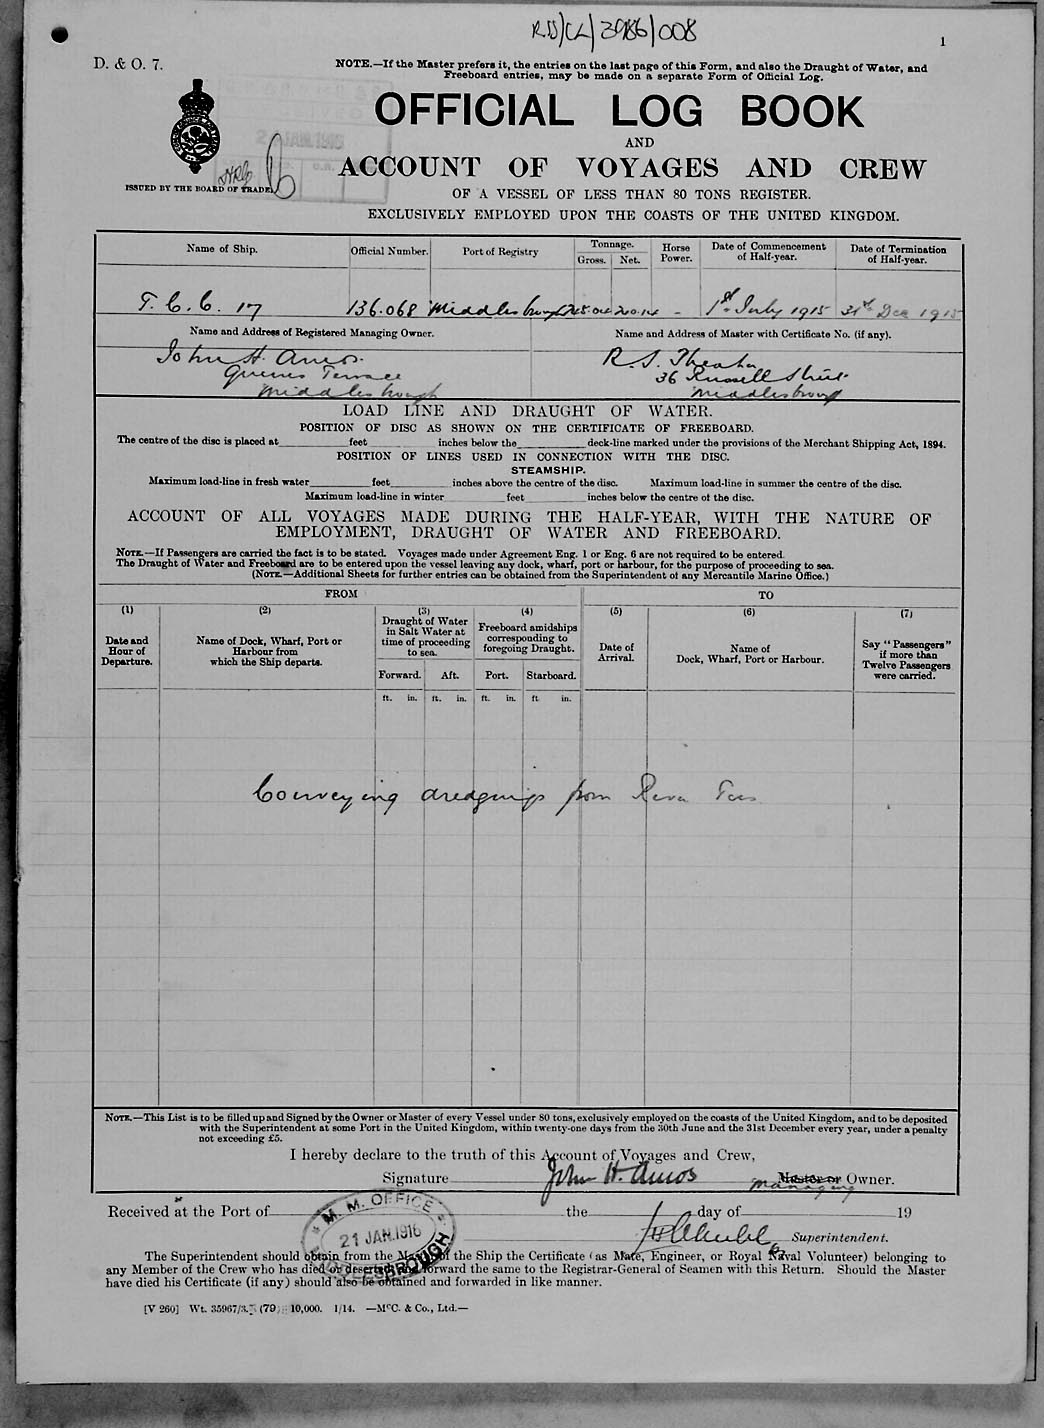 RSS/CL/3986/008
1
D. & O. 7.
NOTE.—If the Master prefers it, the entries on the last page of this Form, and also the Draught of Water, and
Freeboard entries, may be made on a separate Form of Official Log.
OFFICIAL LOG BOOK
AND
ACCOUNT OF VOYAGES AND CREW
ISSUED BY THE BOARD OF TRADE.
OF A VESSEL OF LESS THAN 80 TONS REGISTER.
EXCLUSIVELY EMPLOYED UPON THE COASTS OF THE UNITED KINGDOM.
Name of Ship. Official Number. Port of Registry Tonnage. Gross. Net. Horse Power. Date of Commencement of Half-year. Date of Termination of Half-year.
T. C. C. 17 136.068 Middlesbrough - 1st July 1915 31st Dec 1915
Name and Address of Registered Managing Owner. Name and Address of Master with Certificate No. (if any).
John H. Amos. R. S.
Queens Terrace 36 Russell Street
Middlesbrough Middlesbrough
LOAD LINE AND DRAUGHT OF WATER.
POSITION OF DISC AS SHOWN ON THE CERTIFICATE OF FREEBOARD.
The centre of the disc is placed at feet inches below the deck-line marked under the provisions of the Merchant Shipping Act, 1894.
POSITION OF LINES USED IN CONNECTION WITH THE DISC.
STEAMSHIP.
Maximum load-line in fresh water feet inches above the centre of the disc. Maximum load-line in summer the centre of the disc.
Maximum load-line in winter feet inches below the centre of the disc.
ACCOUNT OF ALL VOYAGES MADE DURING THE HALF-YEAR, WITH THE NATURE OF
EMPLOYMENT, DRAUGHT OF WATER AND FREEBOARD.
NOTE.—If Passengers are carried the fact is to be stated. Voyages made under Agreement Eng. 1 or Eng. 6 are not required to be entered.
The Draught of Water and Freeboard are to be entered upon the vessel leaving any dock, wharf, port or harbour, for the purpose of proceeding to sea.
(NOTE.—Additional Sheets for further entries can be obtained from the Superintendent of any Mercantile Marine Office.)
FROM TO
(1) (2) (3) (4) (5) (6) (7)
Date and Hour of Departure.
Name of Dock, Wharf, Port or Harbour from which the Ship departs.
Draught of Water in Salt Water at time of proceeding to sea.
Freeboard amidships corresponding to foregoing Draught.
Date of Arrival.
Name of Dock, Wharf, Port or Harbour.
Say "Passengers" if more than Twelve Passengers were carried.
Forward. Aft. Port. Starboard.
ft. in. ft. in. ft. in. ft in.
Conveying dredgings from River Tees
NOTE.—This List is to be filled up and Signed by the Owner or Master of every Vessel under 80 tons, exclusively employed on the coasts of the United Kingdom, and to be deposited
with the Superintendent at some Port in the United Kingdom, within twenty-one days from the 30th June and the 31st December every year, under a penalty
not exceeding £5.
I hereby declare to the truth of this Account of Voyages and Crew,
Signature John H. Amos Master or Owner.
managing
Received at the Port of the day of 19
M. M. OFFICE
21 JAN. 1916
MIDDLESBROUGH
Superintendent.
The Superintendent should obtain from the Master of the Ship the Certificate (as Mate, Engineer, or Royal Naval Volunteer) belonging to
any Member of the Crew who has died or deserted and forward the same to the Registrar-General of Seamen with this Return. Should the Master
have died his Certificate (if any) should also be obtained and forwarded in like manner.
[V 260] Wt. 35967/3. (79) 10,000. 1/14. —McC. & Co., Ltd.—